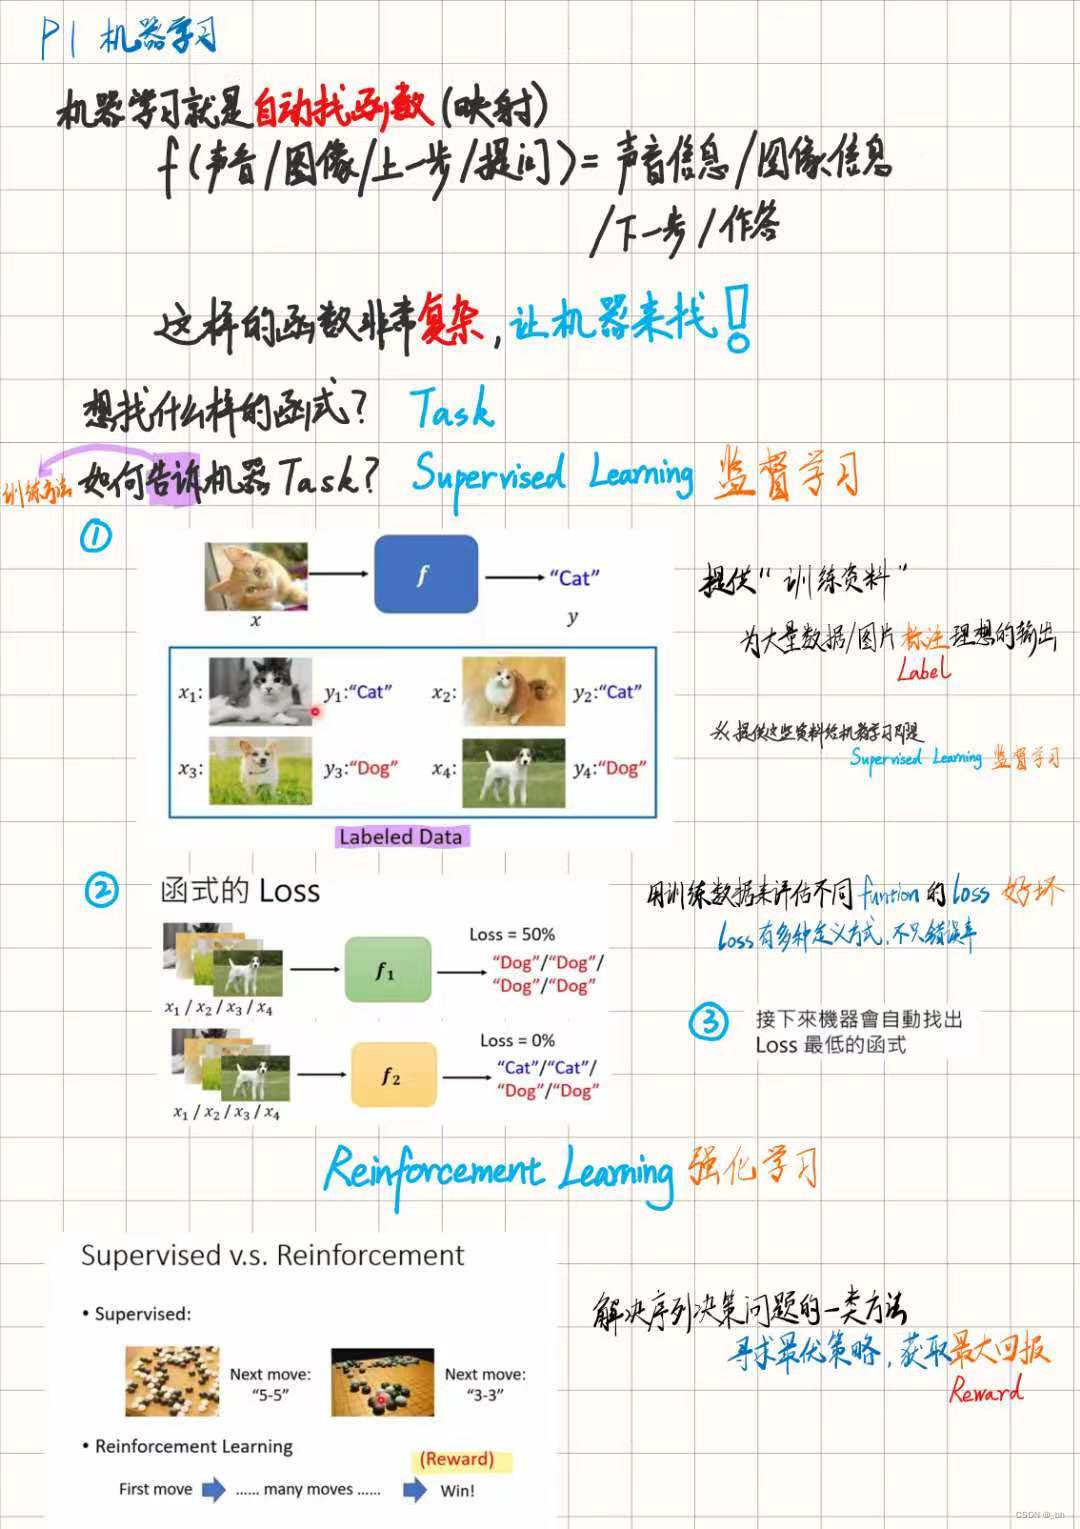 P1 机器学习
机器学习就是自动找函数(映射)
f(声音/图像/上一步/提问)=声音信息/图像信息
/下一步/作答
这样的函数非常复杂,让机器来找!
想找什么样的函式? Task
训练方法 如何告诉机器Task? Supervised Learning 监督学习
①
f
"Cat"
x
y
提供"训练资料"
为大量数据/图片标注理想的输出
Label
x1: y1:"Cat" x2: y2:"Cat"
x3: y3:"Dog" x4: y4:"Dog"
Labeled Data
※提供这些资料给机器学习即是
Supervised Learning 监督学习
② 函式的 Loss
用训练数据来评估不同funtion的loss 好坏
loss有多种定义方式,不只错误率
Loss = 50%
f1
"Dog"/"Dog"/
"Dog"/"Dog"
x1 / x2 / x3 / x4
Loss = 0%
f2
"Cat"/"Cat"/
"Dog"/"Dog"
x1 / x2 / x3 / x4
③ 接下來機器會自動找出
Loss 最低的函式
Reinforcement Learning 强化学习
Supervised v.s. Reinforcement
• Supervised:
Next move:
"5-5"
Next move:
"3-3"
• Reinforcement Learning
(Reward)
First move
...... many moves ......
Win!
解决序列决策问题的一类方法
寻求最优策略,获取最大回报
Reward
CSDN @_bn